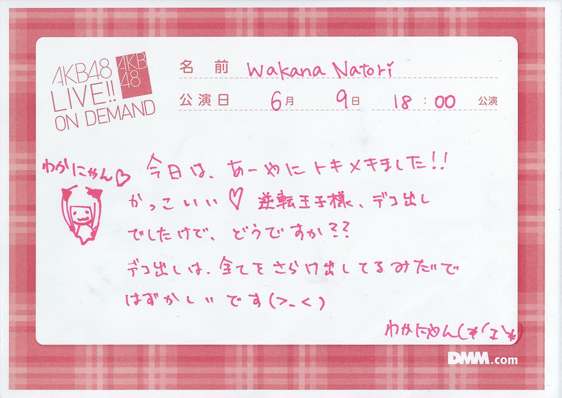 AKB48
LIVE!!
ON DEMAND
AKB
48
名前 Wakana Natori
公演日 6月 9日 18:00 公演
わかにゃん♡
今日は、あーやにトキメキました!!
かっこいい♡ 逆転王子様、デコ出し
でしたけで、どうですか??
デコ出しは、全てをさらけ出してるみたいで
はずかしいです(>_<)
わかにゃん(*´ｪ`*)
DMM.com